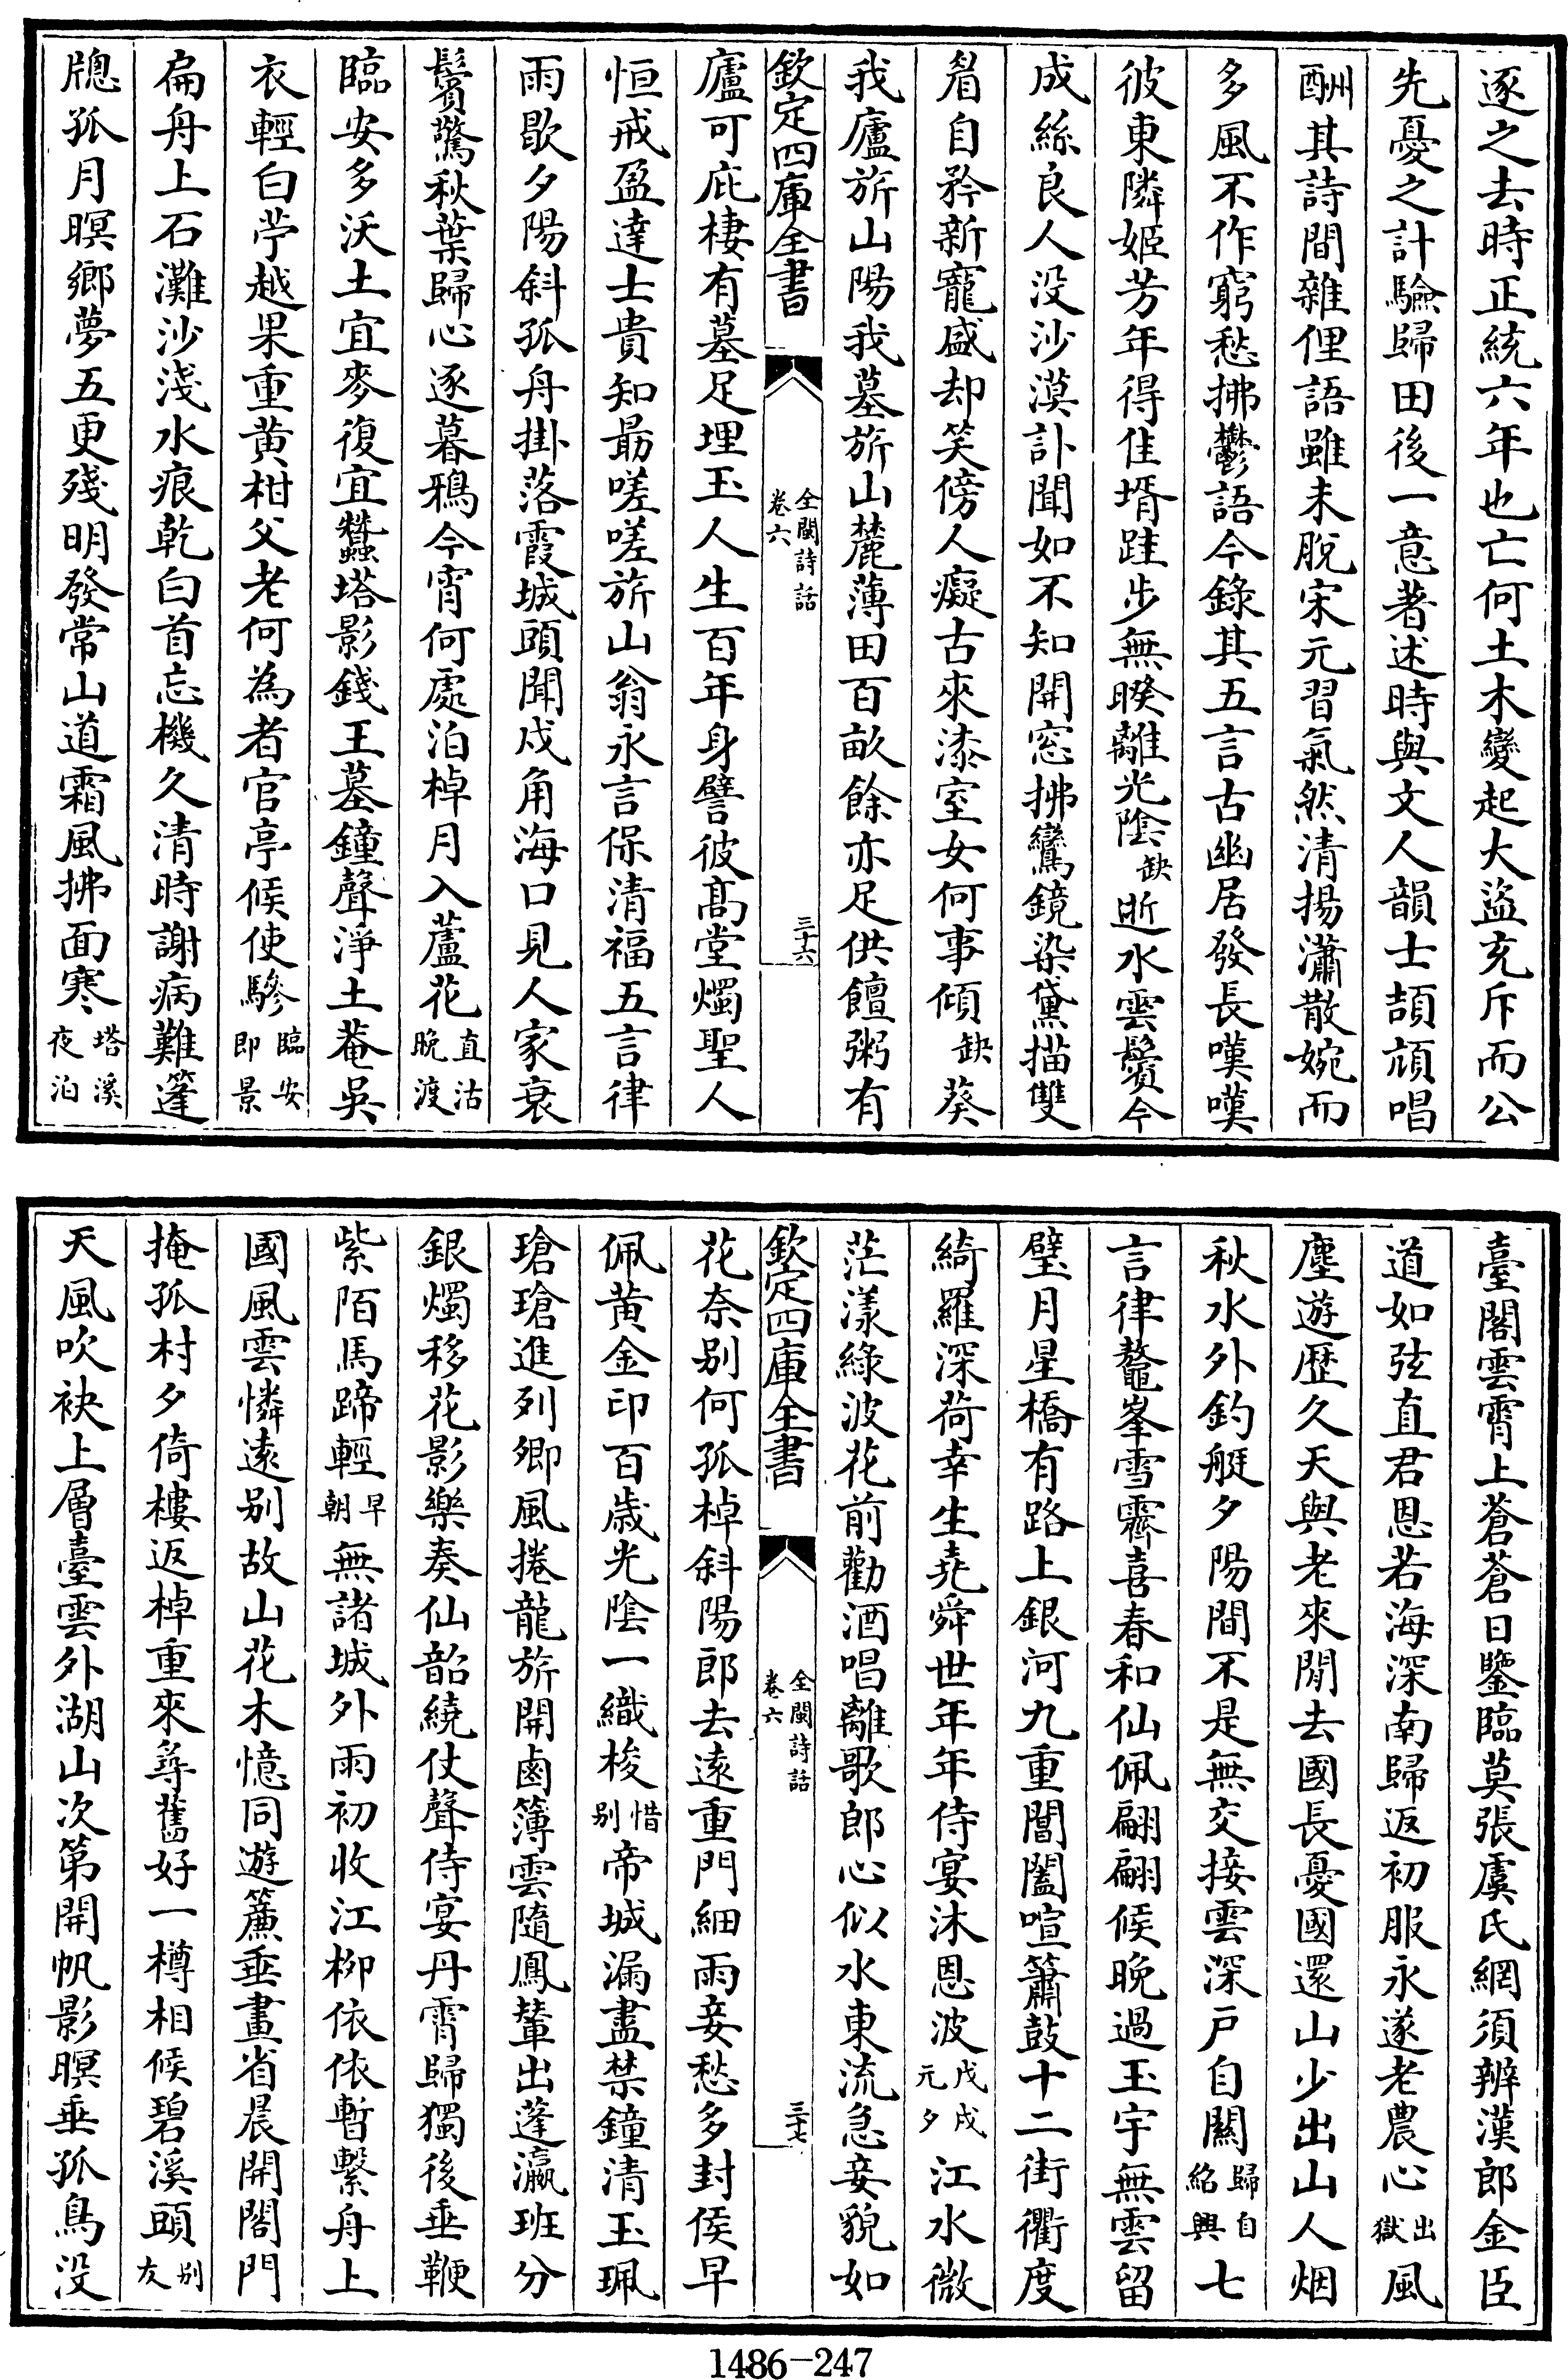 逐之去時正統六年也亡何土木變起大盜充斥而公
先憂之計驗歸田後一意著述時與文人韻士頡頏唱
酬其詩間雜俚語雖未脫宋元習氣然清揚瀟散婉而
多風不作窮愁拂鬱語今錄其五言古幽居發長嘆嘆
彼東隣姬芳年得佳壻跬步無暌離光陰缺逝水雲鬢今
成絲良人没沙漠訃聞如不知開窓拂鸞鏡染黛描雙
眉自矜新寵盛却笑傍人癡古來漆室女何事傾缺葵
我廬旂山陽我墓旂山麓薄田百畝餘亦足供饘粥有
欽定四庫全書
全閩詩話
卷六
三十六
廬可庇棲有墓足埋玉人生百年身譬彼高堂燭聖人
恒戒盈達士貴知朂嗟嗟旂山翁永言保清福五言律
雨歇夕陽斜孤舟掛落霞城頭聞戍角海口見人家衰
鬢驚秋葉歸心逐暮鴉今宵何處泊棹月入蘆花直沽晚渡
臨安多沃土宜麥復宜蠶塔影錢王墓鐘聲淨土菴吳
衣輕白苧越果重黄柑父老何為者官亭候使驂臨安即景
扁舟上石灘沙淺水痕乾白首忘機久清時謝病難篷
牕孤月暝鄉夢五更殘明發常山道霜風拂面寒塔溪夜泊
臺閣雲霄上蒼蒼日鑒臨莫張虞氏網須辨漢郎金臣
道如弦直君恩若海深南歸返初服永遂老農心出獄風
塵遊歷久天與老來閒去國長憂國還山少出山人烟
秋水外釣艇夕陽間不是無交接雲深戸自關歸自紹興七
言律鼇峯雪霽喜春和仙佩翩翩候晚過玉宇無雲留
璧月星橋有路上銀河九重閶闔喧簫鼓十二街衢度
綺羅深荷幸生堯舜世年年侍宴沐恩波戊戌元夕江水微
茫漾綠波花前勸酒唱離歌郎心似水東流急妾貌如
欽定四庫全書
全閩詩話
卷六
三十七
花奈别何孤棹斜陽郎去遠重門細雨妾愁多封侯早
佩黄金印百歲光陰一織梭惜别帝城漏盡禁鐘清玉珮
瑲瑲進列卿風捲龍旂開鹵簿雲隨鳳輦出蓬瀛班分
銀燭移花影樂奏仙韶繞仗聲侍宴丹霄歸獨後垂鞭
紫陌馬蹄輕早朝無諸城外雨初收江栁依依暫繫舟上
國風雲憐遠别故山花木憶同遊簾垂畫省晨開閣門
掩孤村夕倚樓返棹重來尋舊好一樽相候碧溪頭别友
天風吹袂上層臺雲外湖山次第開帆影暝垂孤鳥没
1486-247